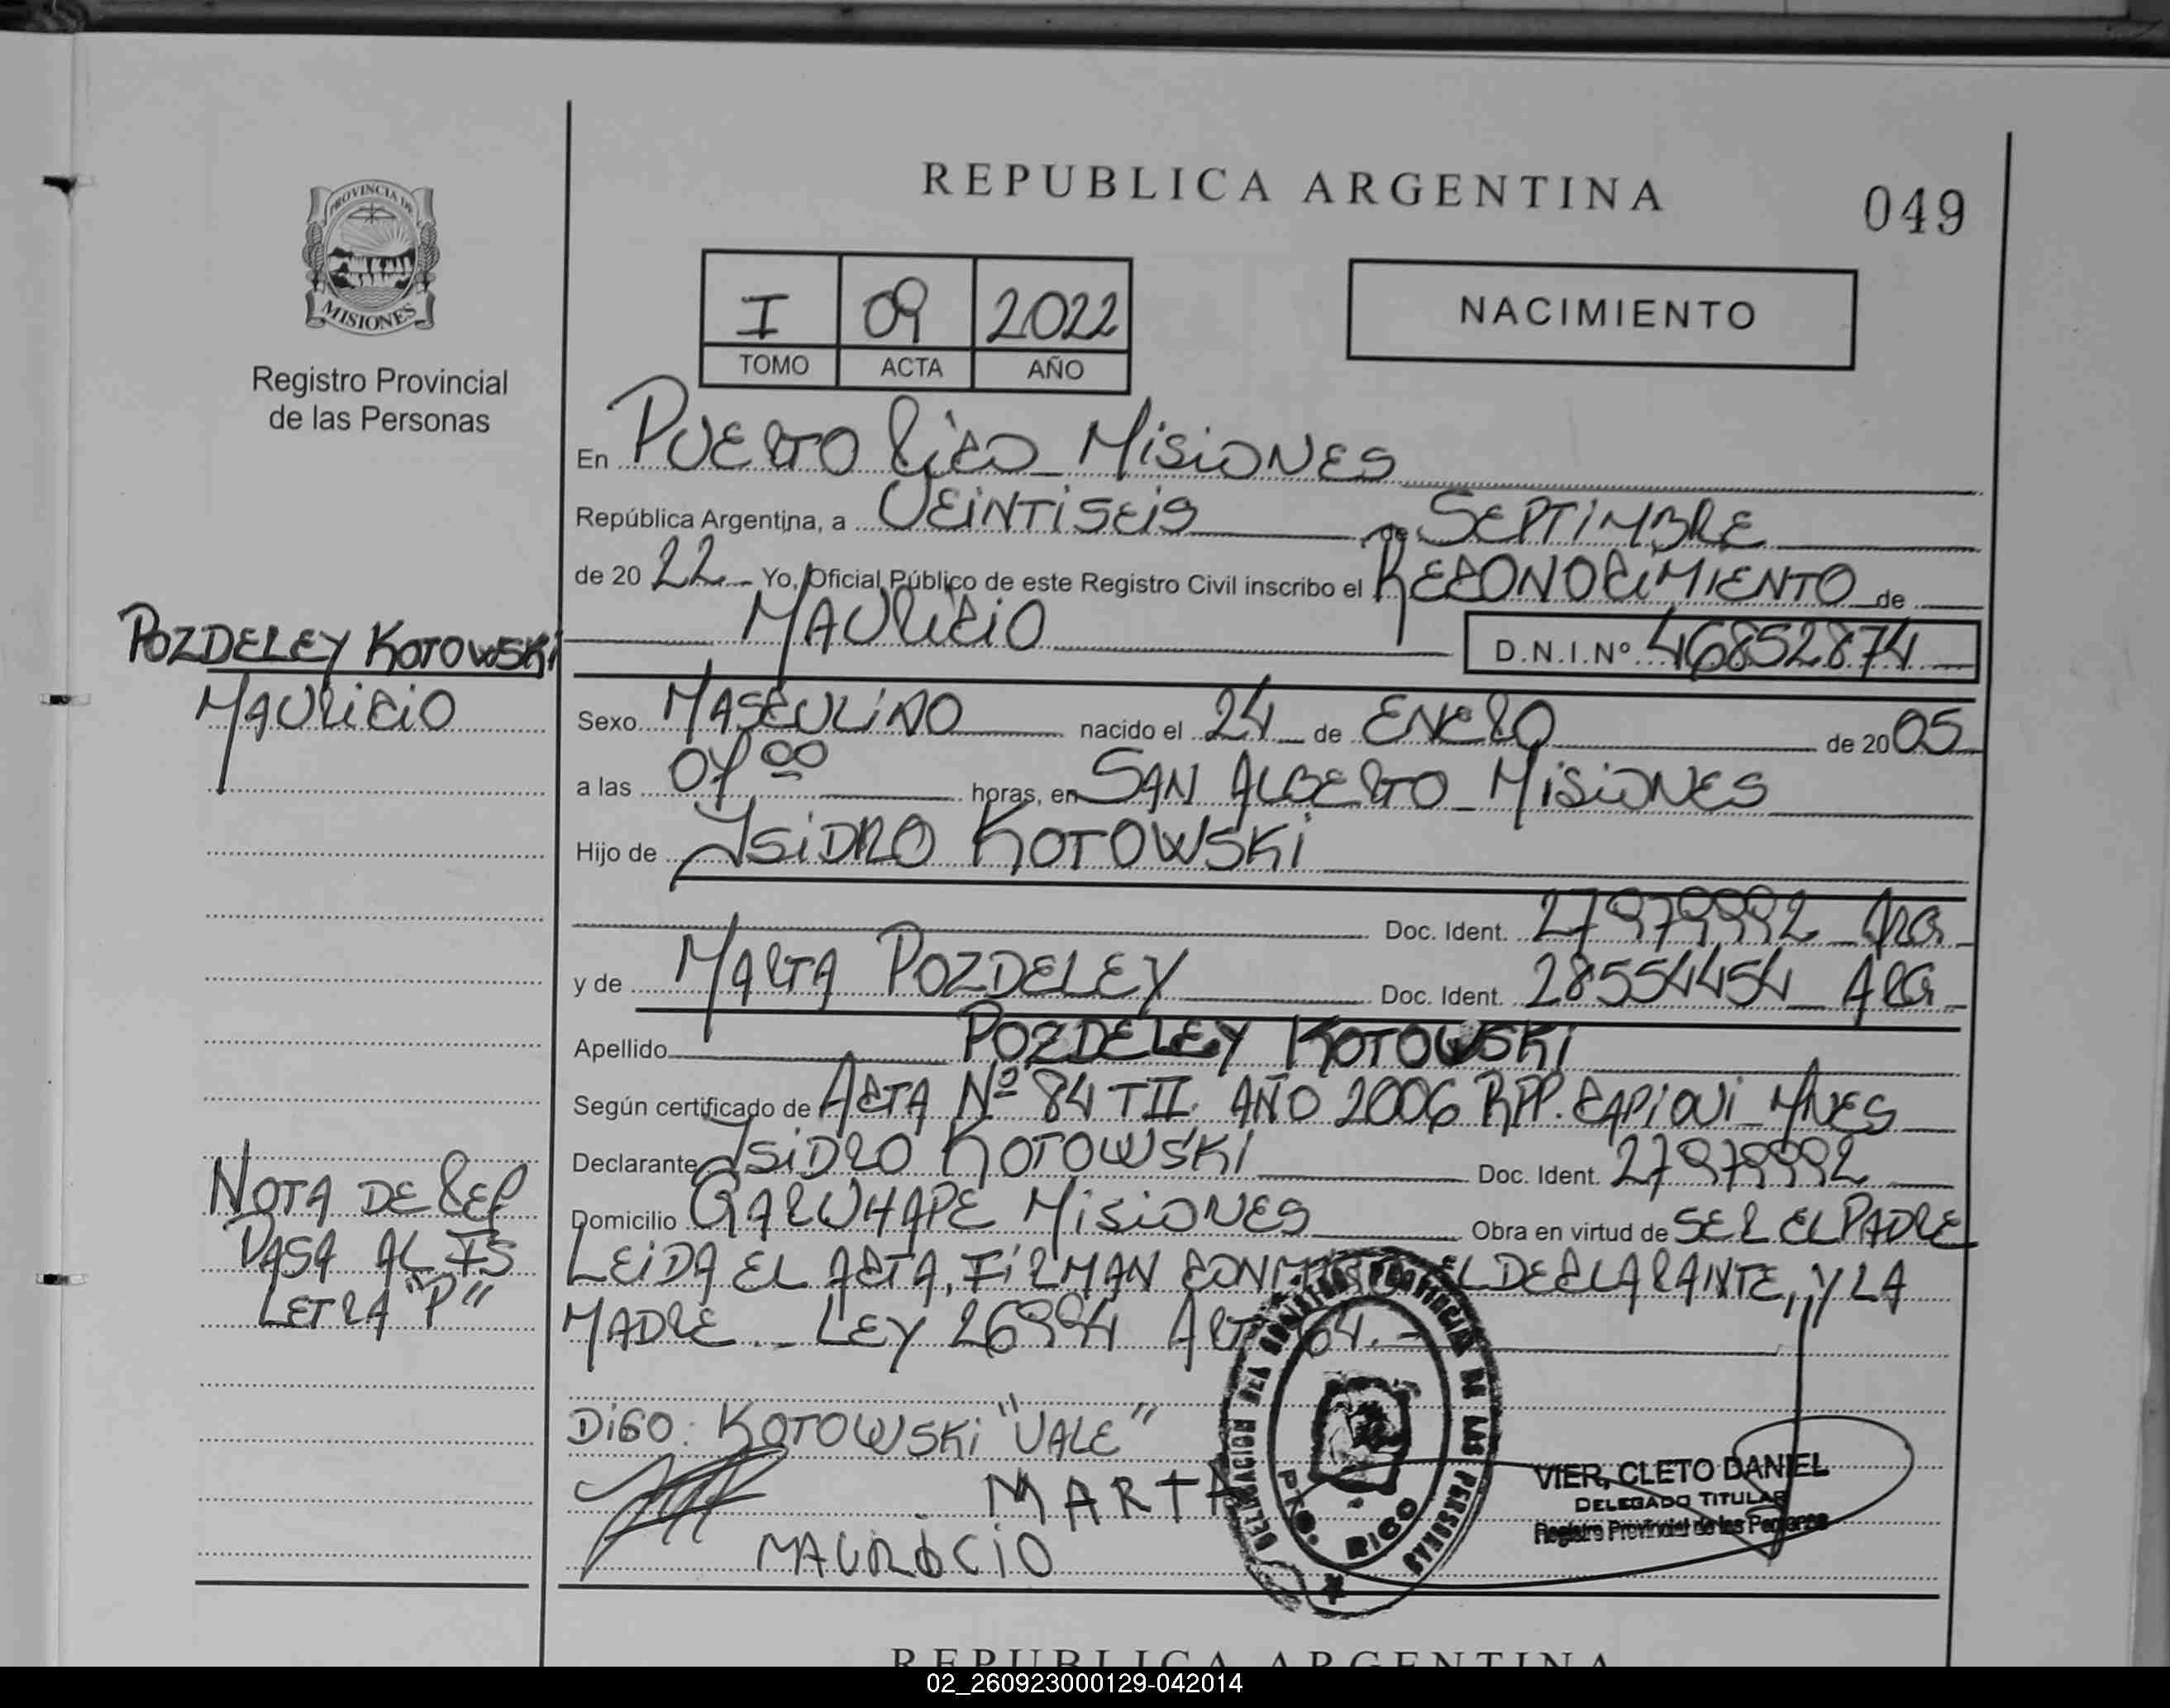 REPUBLICA ARGENTINA
049
PROVINCIA DE
MISIONES
Registro Provincial
de las Personas
I 09 2022
TOMO ACTA AÑO
NACIMIENTO
En PUERTO RICO MISIONES
República Argentina, a VEINTISEIS de SEPTIMBRE
de 20 22 Yo, Oficial Público de este Registro Civil inscribo el RECONOCIMIENTO de
MAURICIO D.N.I.Nº 46852874
POZDELEY KOTOWSKI
MAURICIO
Sexo MASCULINO nacido el 24 de ENERO de 20 05
a las 07 00 horas, en SAN ALBERTO MISIONES
Hijo de ISIDRO KOTOWSKI
Doc. Ident. 27979992 ARG
y de MARTA POZDELEY Doc. Ident. 28554454 ARG
Apellido POZDELEY KOTOWSKI
Según certificado de ACTA Nº 84 TII AÑO 2006 RPP. CAPIOVI MNES
Declarante ISIDRO KOTOWSKI Doc. Ident. 27979992
Domicilio GARUHAPE MISIONES Obra en virtud de SER EL PADRE
LEIDA EL ACTA, FIRMAN CONMIGO EL DECLARANTE, Y LA
MADRE LEY 26994 ART 64.-
NOTA DE REF
PASA AL IS
LETRA "P"
DIGO: KOTOWSKI "VALE"
MARTA
MAURICIO
DELEGACION DEL REGISTRO PROVINCIAL DE LAS PERSONAS
PTO. RICO
VIER, CLETO DANIEL
DELEGADO TITULAR
Registro Provincial de las Personas
REPUBLICA ARGENTINA
02_260923000129-042014